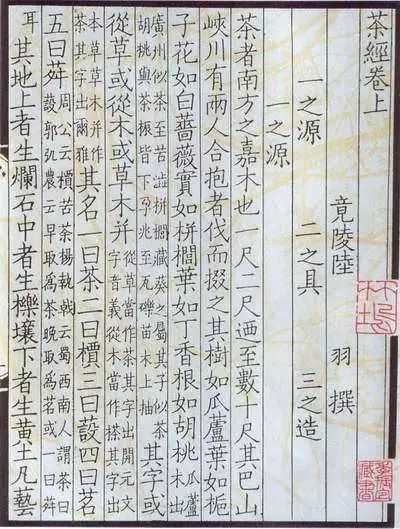 茶經卷上
竟陵陸 羽 撰
一之源 二之具 三之造
一之源
茶者南方之嘉木也一尺二尺迺至數十尺其巴山
峽川有兩人合抱者伐而掇之其樹如瓜蘆葉如梔
子花如白薔薇實如栟櫚葉如丁香根如胡桃瓜蘆木出
廣州似茶至苦澁栟櫚之屬其子似茶胡桃與茶根皆下孕兆至瓦礫苗木上抽其字或
從草或從木或草木并從草當作茶其字出開元文字音義從木當作搽其字出
本草草木并作茶其字出爾雅其名一曰茶二曰檟三曰蔎四曰茗
五曰荈周公云檟苦茶揚執戟云蜀西南人謂茶曰蔎郭弘農云早取爲茶晚取爲茗或一曰荈
耳其地上者生爛石中者生櫟壤下者生黃土凡藝
藏書